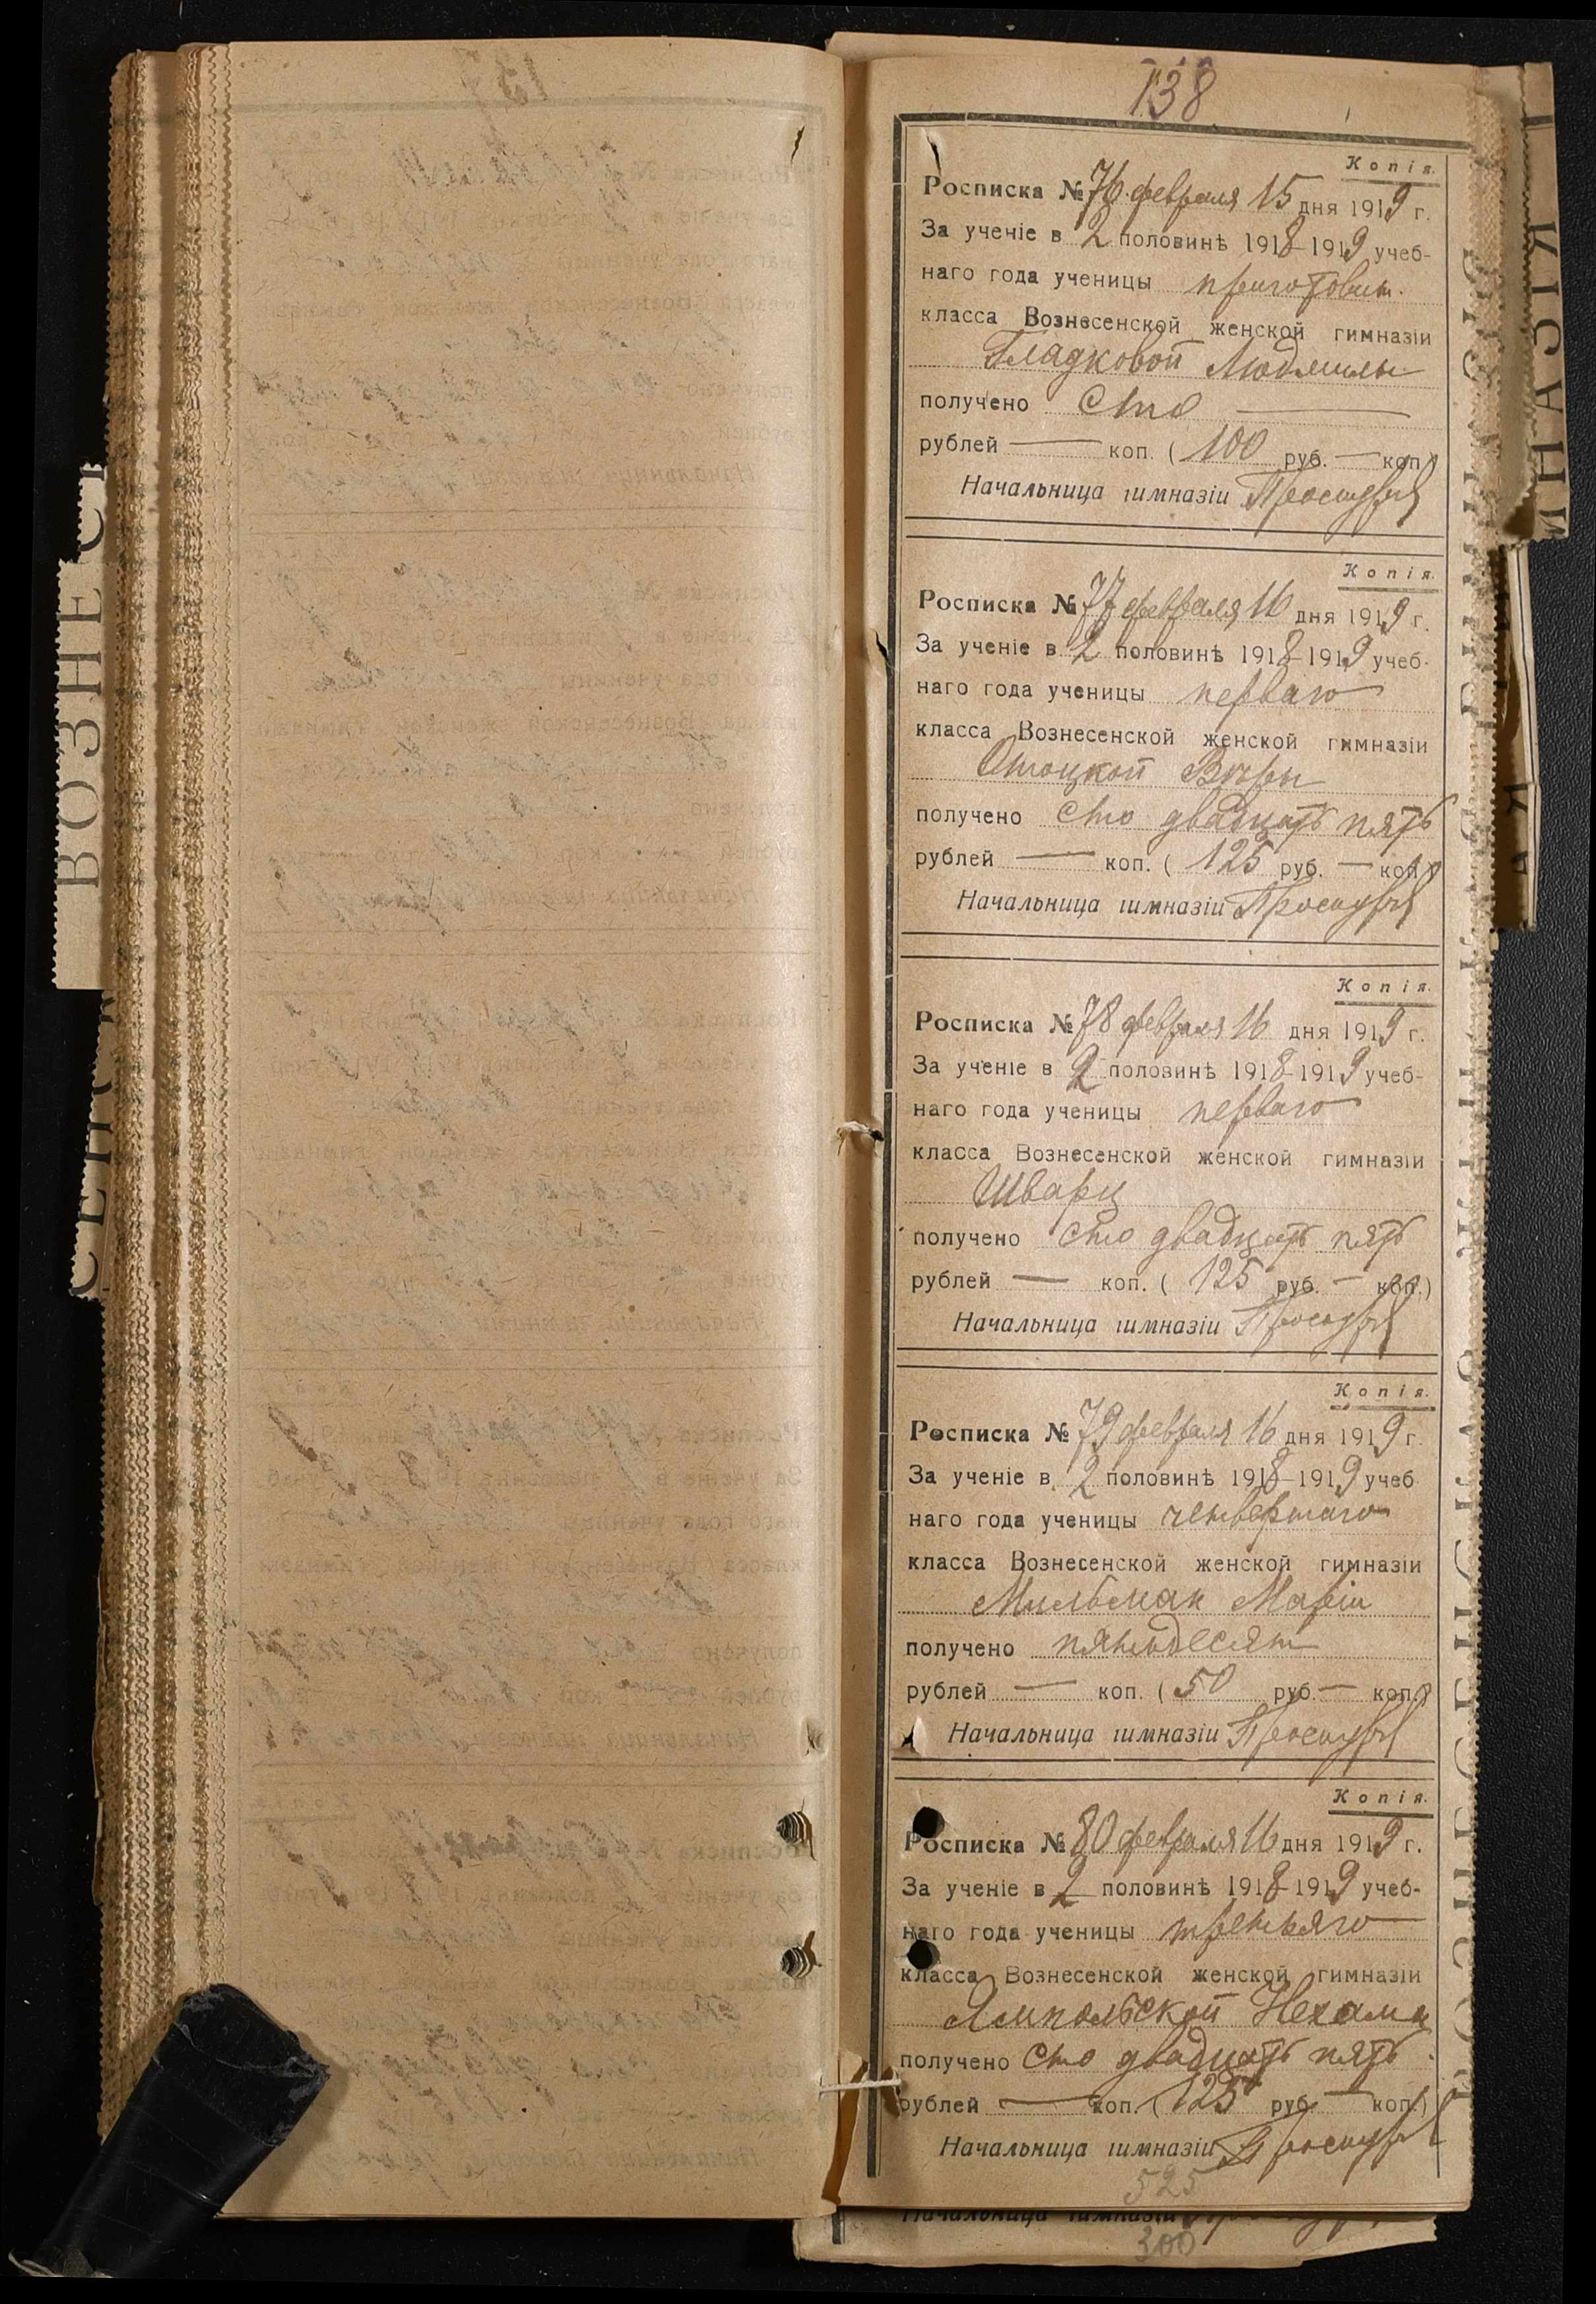 138
Копія.
Росписка № 76 февраля 15 дня 1919 г.
За ученіе в 2 половинѣ 1918-1919 учеб-
наго года ученицы приготовит.
класса Вознесенской женской гимназіи
Гладковой Людмилы
получено Сто
рублей — коп. (100 руб. — коп.)
Начальница гимназіи
Копія.
Росписка № 77 февраля 16 дня 1919 г.
За ученіе в 2 половинѣ 1918-1919 учеб-
наго года ученицы перваго
класса Вознесенской женской гимназіи
Стоцкой Вѣры
получено Сто двадцать пять
рублей — коп. (125 руб. — коп.)
Начальница гимназіи
Копія.
Росписка № 78 февраля 16 дня 1919 г.
За ученіе в 2 половинѣ 1918-1919 учеб-
наго года ученицы перваго
класса Вознесенской женской гимназіи
Шварц
получено Сто двадцать пять
рублей — коп. (125 руб. — коп.)
Начальница гимназіи
Копія.
Росписка № 79 февраля 16 дня 1919 г.
За ученіе в 2 половинѣ 1918-1919 учеб
наго года ученицы четвертаго
класса Вознесенской женской гимназіи
Мильман Маріи
получено пятьдесят
рублей — коп. (50 руб. — коп.)
Начальница гимназіи
Копія.
Росписка № 80 февраля 16 дня 1919 г.
За ученіе в 2 половинѣ 1918-1919 учеб-
наго года ученицы третьяго
класса Вознесенской женской гимназіи
Ямпольской Нехама
получено Сто двадцать пять
рублей — коп. (125 руб. — коп.)
Начальница гимназіи
525
Начальница гимназіи
300
ВОЗНЕС